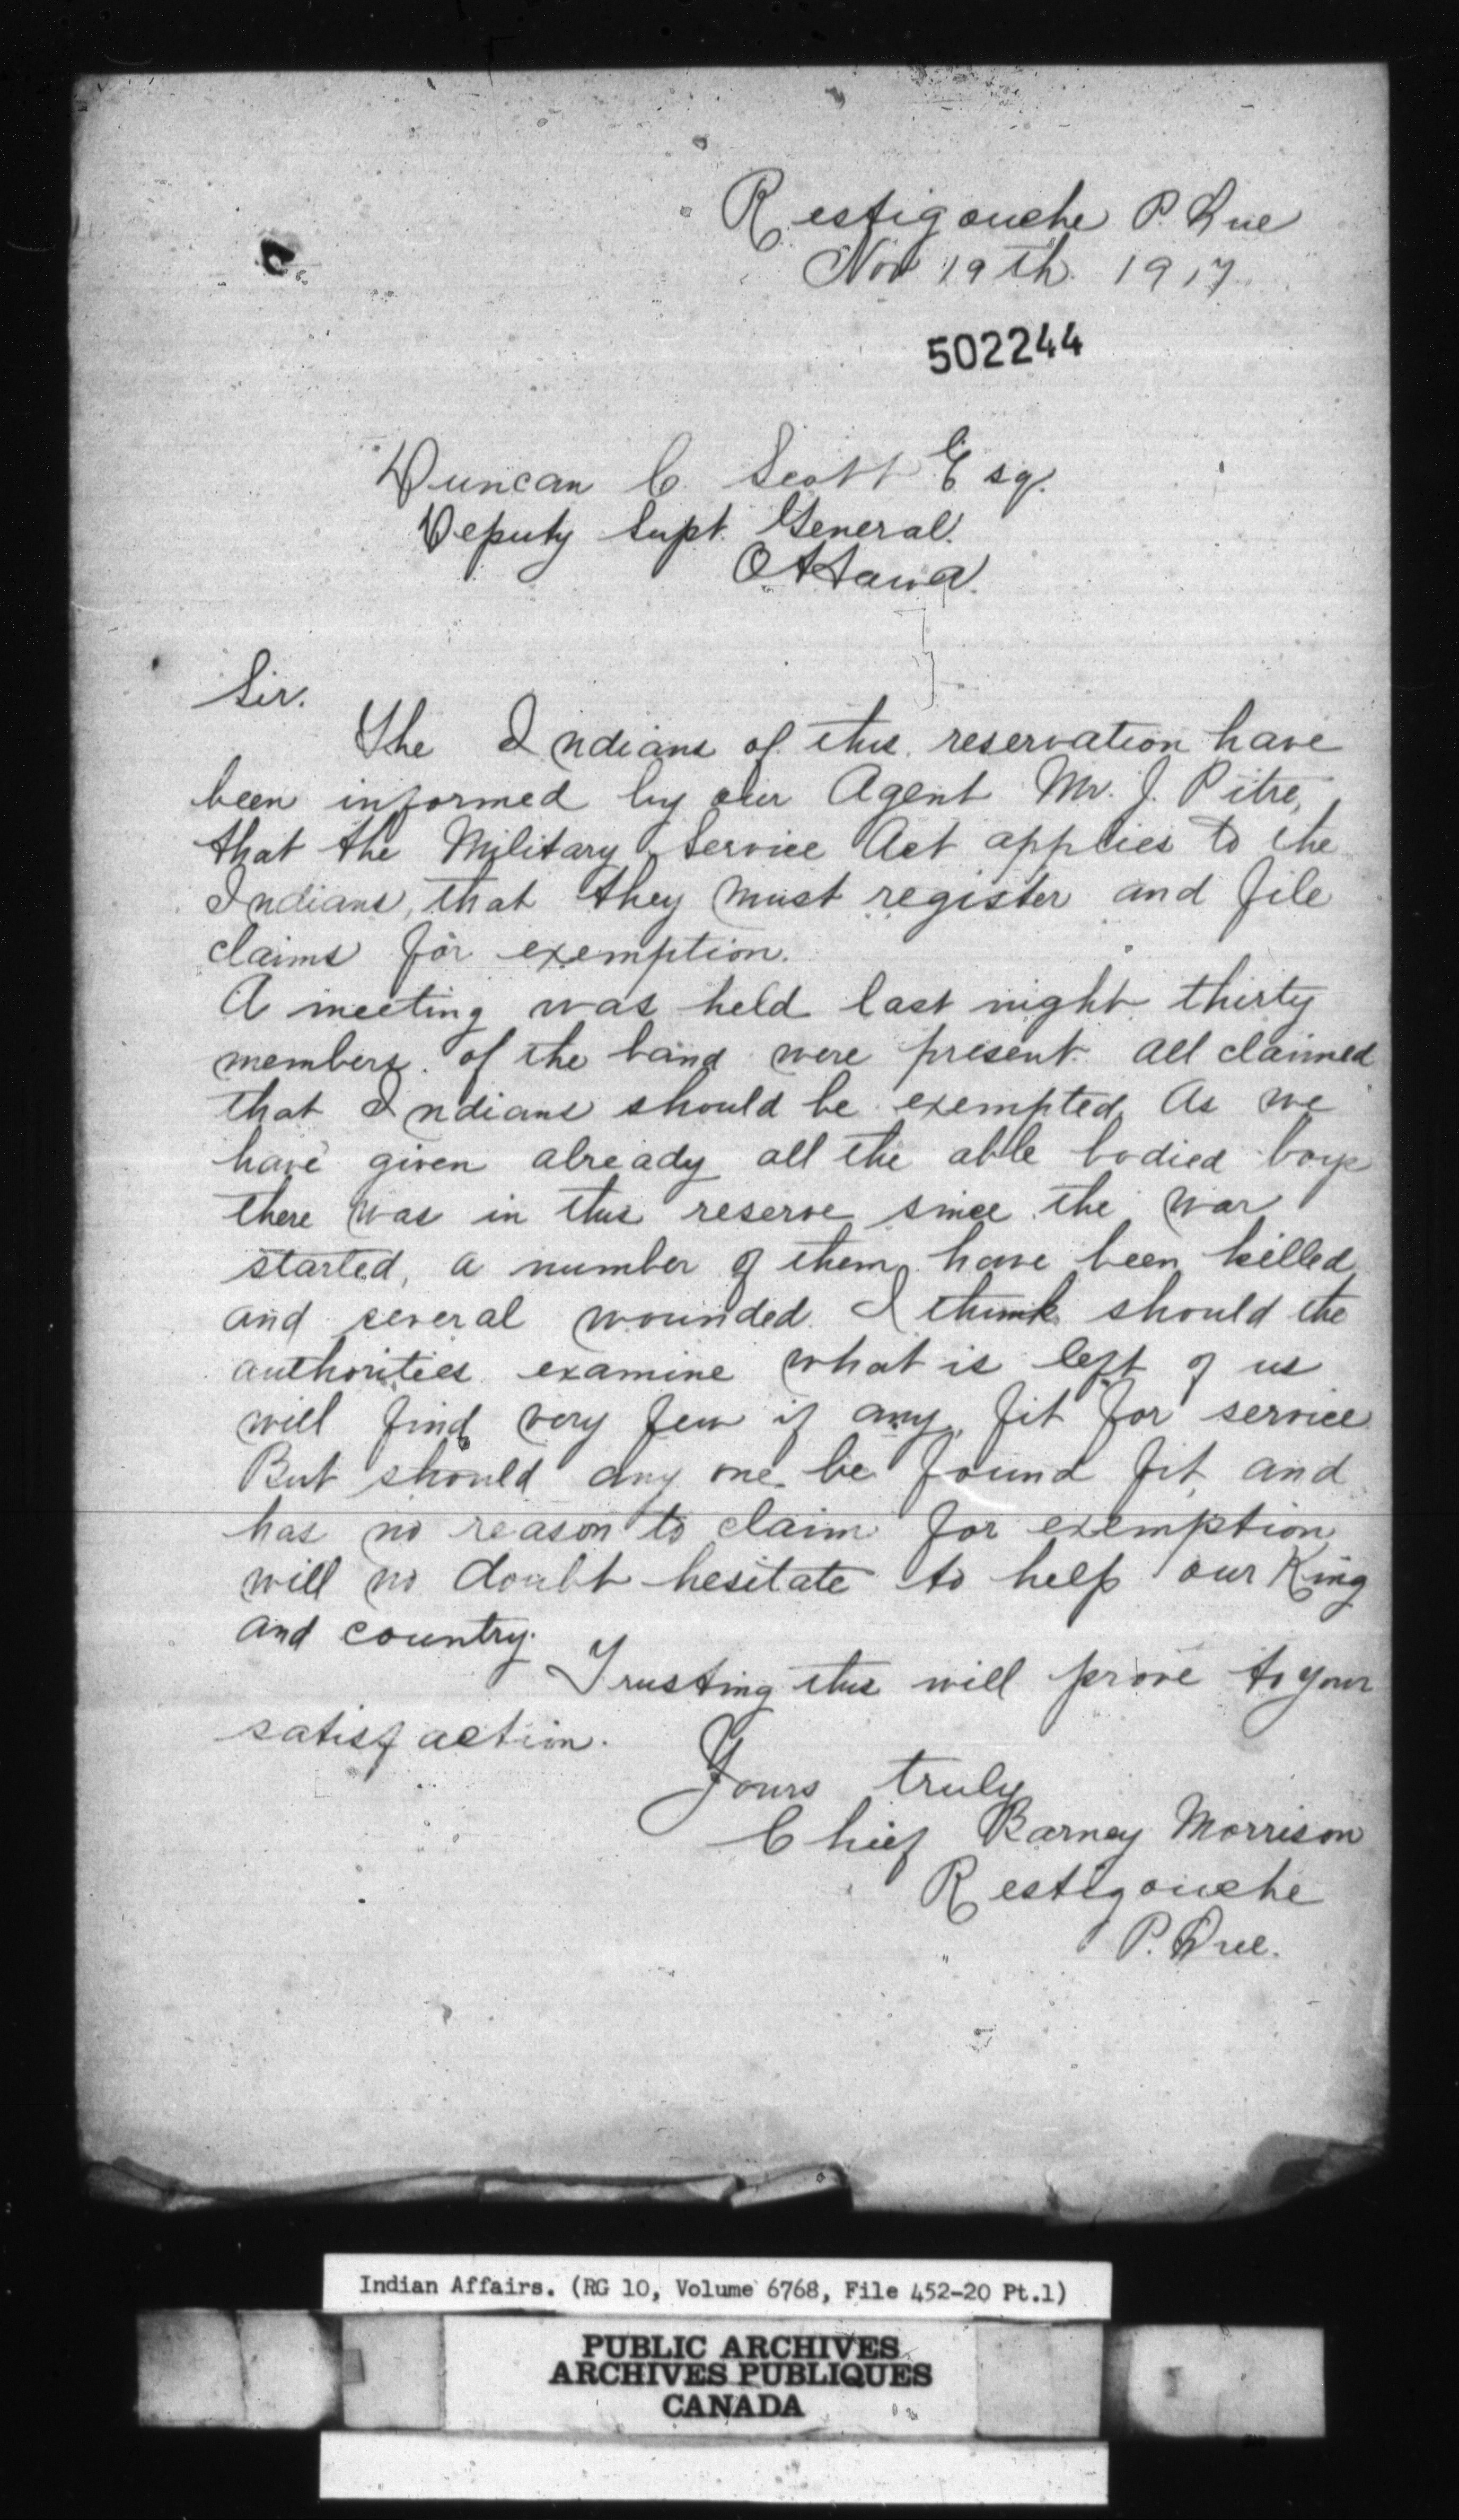 Restigouche P. Que
Nov 19th 1917
502244
Duncan C. Scott Esq.
Deputy Supt. General.
Ottawa.
Sir.
The Indians of this reservation have
been informed by our Agent Mr. J. Pitre,
that the Military Service Act applies to the
Indians, that they must register and file
claims for exemption.
A meeting was held last night thirty
members of the band were present. all claimed
that Indians should be exempted, As we
have given already all the able bodied boys
there was in this reserve since the war
started, a number of them have been killed
and several wounded. I think should the
authorities examine what is left of us
will find very few if any, fit for service.
But should any one be found fit, and
has no reason to claim for exemption,
will no doubt hesitate to help our King
and country.
Trusting this will prove to your
satisfaction.
Yours truly
Chief Barney Morrison
Restigouche
P. Que.
Indian Affairs. (RG 10, Volume 6768, File 452-20 Pt.1)
PUBLIC ARCHIVES
ARCHIVES PUBLIQUES
CANADA